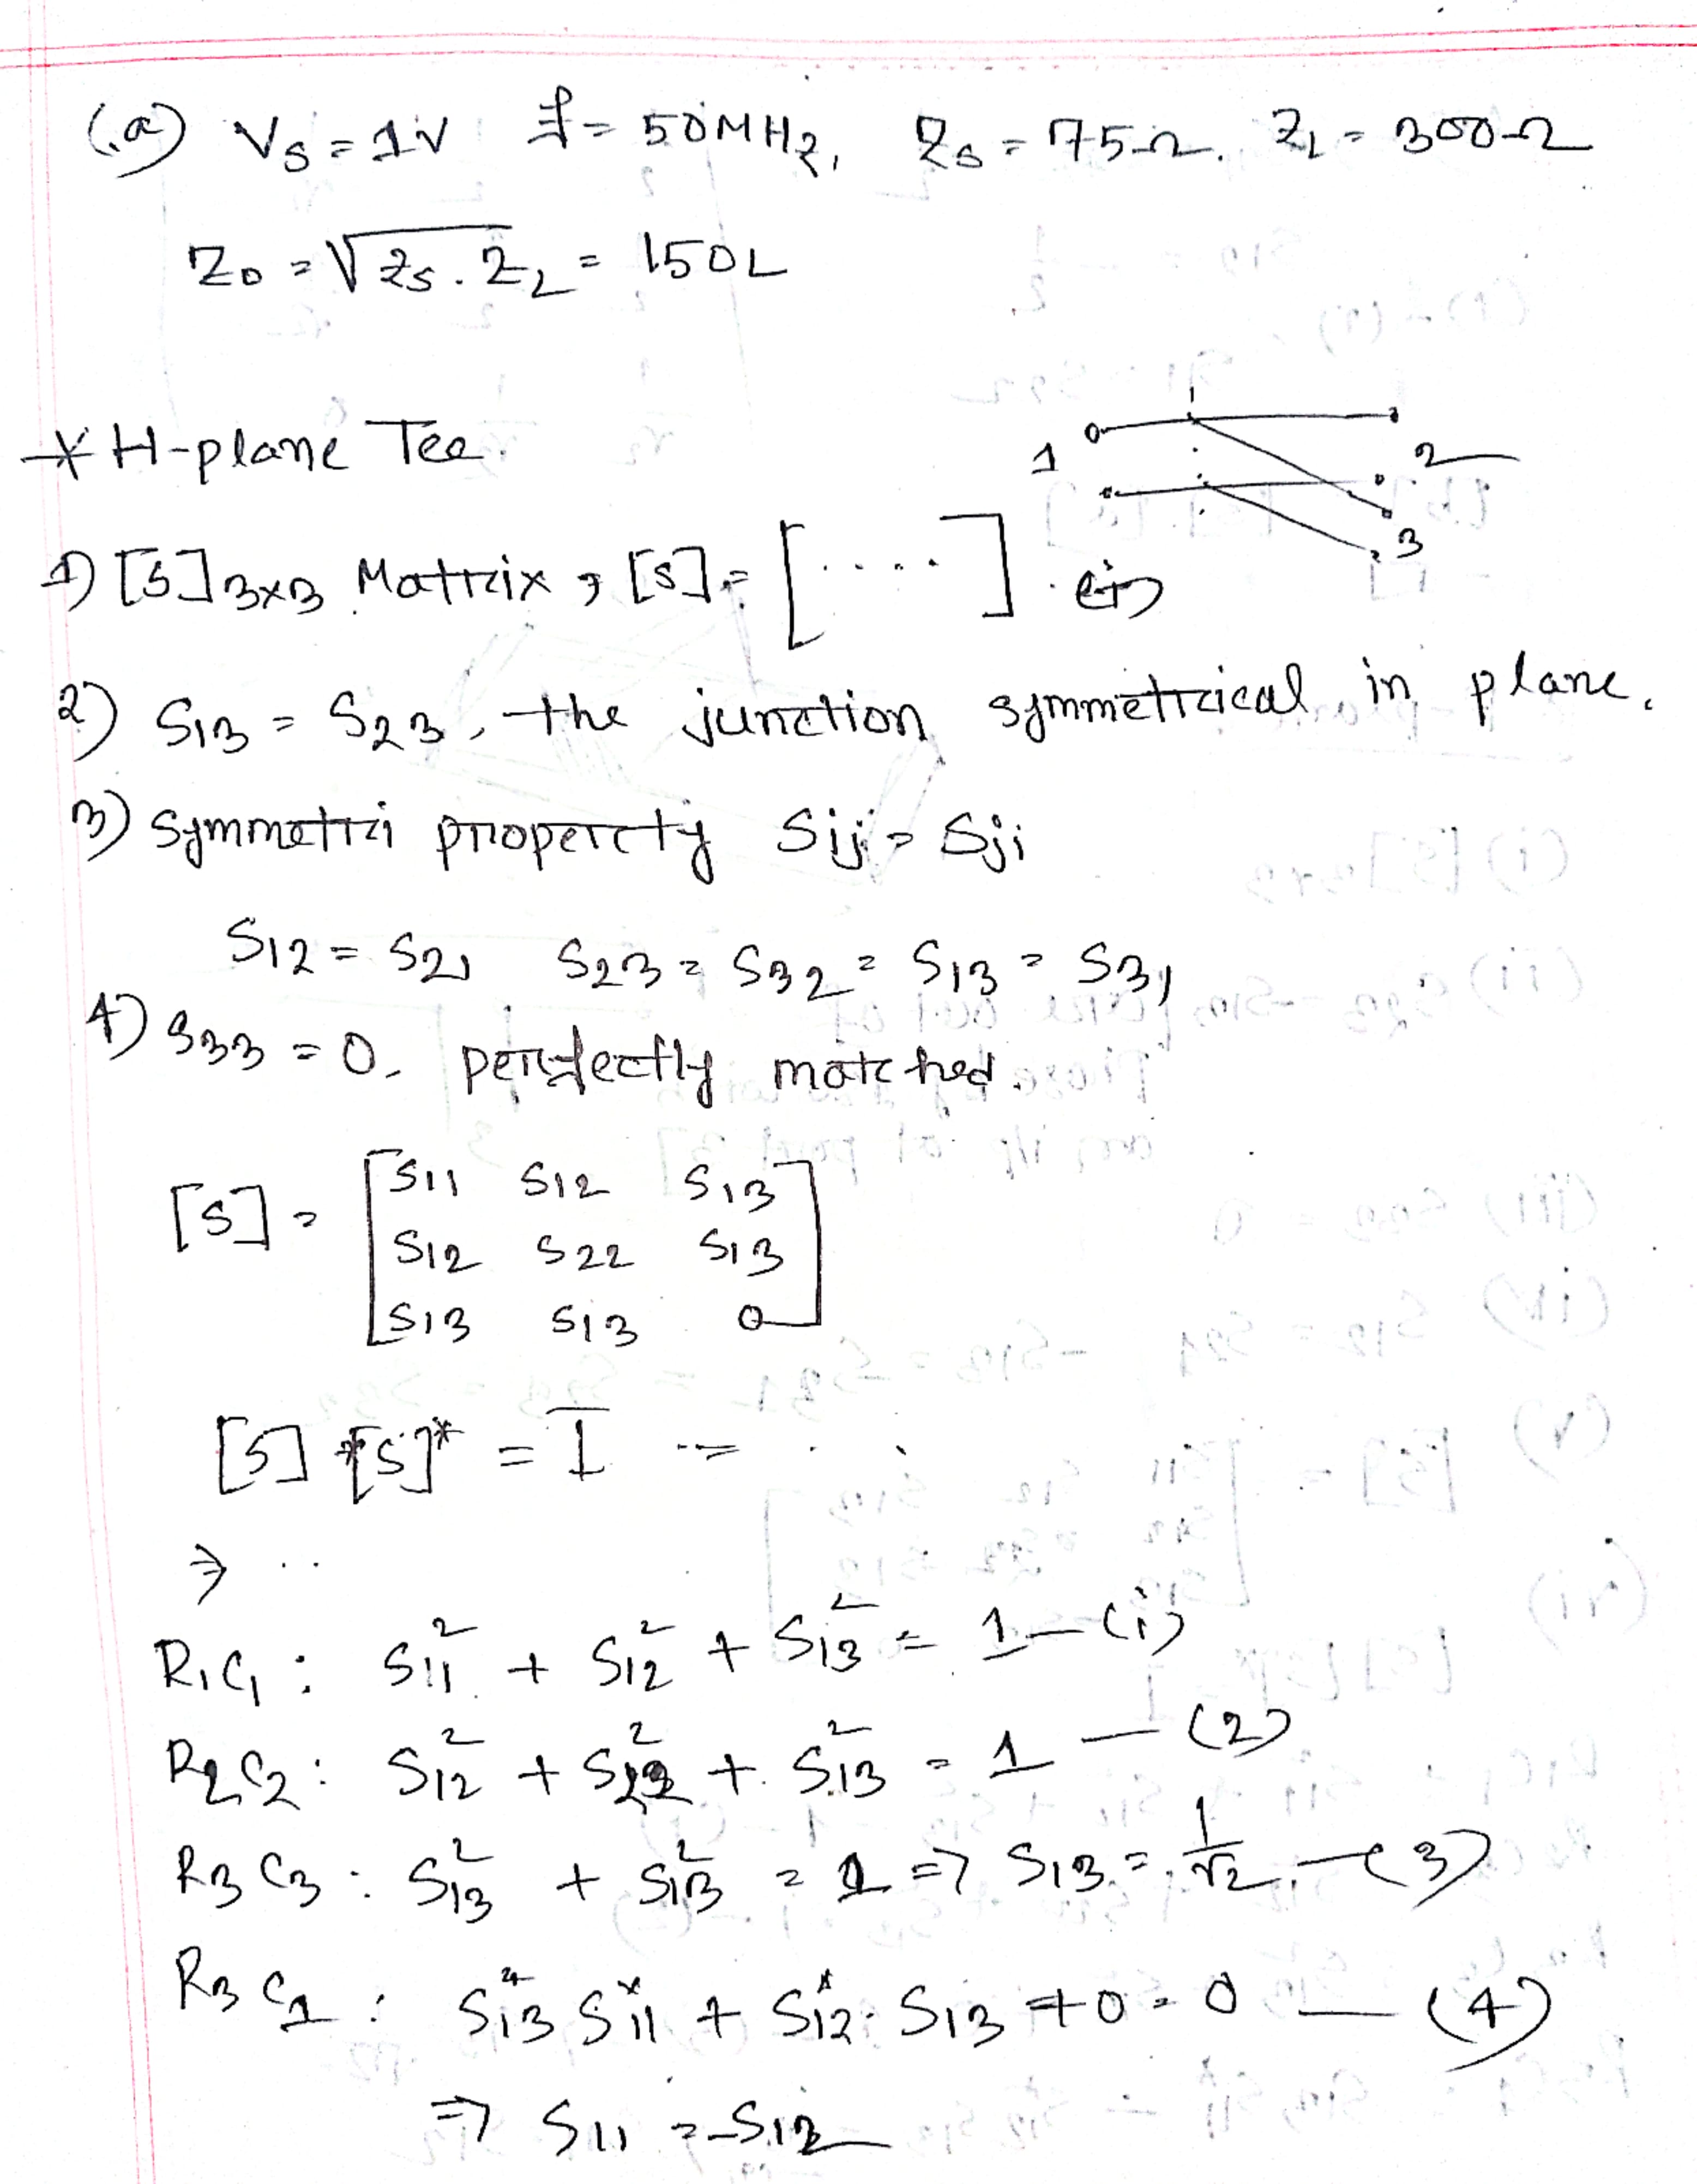 (a) Vs = 1V f = 50MHz, Zs = 75Ω. ZL = 300Ω
Z0 = √Zs.ZL = 150L
* H-plane Tee.
1 2 3
1) [S]3x3 Matrix, [S] = [....]
2) S13 = S23, the junction symmetrical in plane.
3) Symmetri property Sij = Sji
S12 = S21 S23 = S32 = S13 = S31
4) S33 = 0, perfectly matched.
[S] = [S11 S12 S13
S12 S22 S13
S13 S13 0]
[S] [S]* = I --= . .
⇒ ..
R1C1 : S11² + S12² + S13² = 1 — (i)
R2C2 : S12² + S22² + S13² = 1 — (2)
R3C3 : S13² + S13² = 1 => S13 = 1/√2 — (3)
R3C1 : S13 S11* + S12* . S13 + 0 = 0 — (4)
=> S11 = -S12